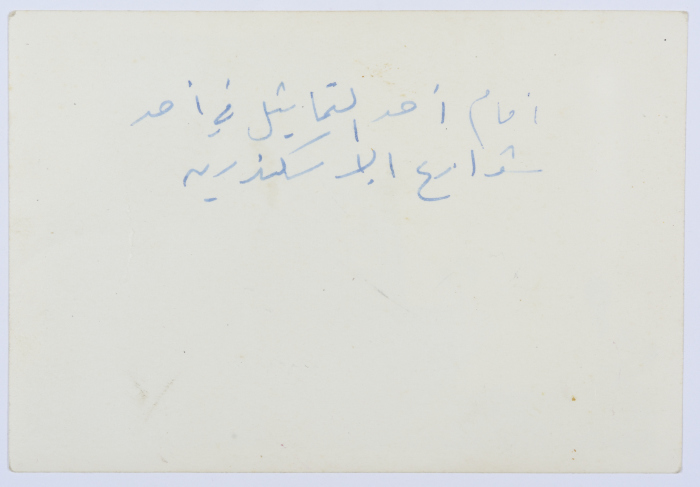 أمام أحد التماثيل في أحد
شوارع الاسكندرية